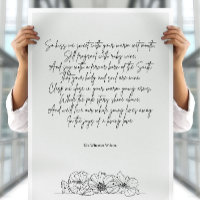 So kiss me sweet with your warm wet mouth,
Still fragrant with ruby wine,
And say with a fervor born of the South
That your body and soul are mine.
Clasp me close in your warm young arms,
While the pale stars shine above,
And we'll live our whole young lives away
In the joys of a living love.
Ella Wheeler Wilcox